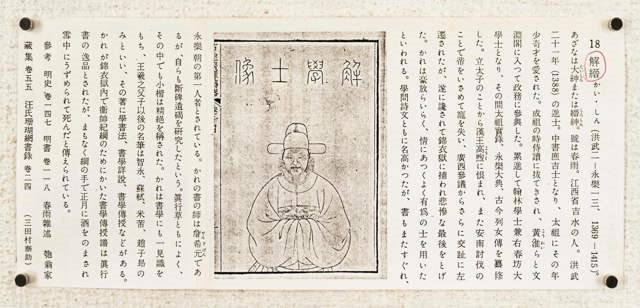 18 解縉 かい・しん 〔洪武二—永樂一三、1369—1415〕
あざなは大紳または縉紳。號は春雨。江西省吉水の人。洪武
二十一年 (1388) の進士。中書庶吉士となり、太祖にその年
少奇才を愛された。成祖の時侍讀に拔てきされ、黃淮らと文
淵閣に入つて政務に參與した。累進して翰林學士兼右春坊大
學士となり、その間太祖實錄、永樂大典、古今列女傳を纂修
した。立太子のことから漢王高煦に恨まれ、また安南討伐の
ことで帝をいさめて寵を失い、廣西參議からさらに交趾に左
遷されたが、遂に讒されて錦衣獄に捕われ悲慘な最後をとげ
た。かれは豪放らいらく、情にあつくよく有爲の士を用いた
といわれる。學問詩文ともに名高かつたが、書もまたすぐれ、
解學士像
永樂朝の第一人者とされている。かれの書の師は詹希元であ
るが、自らも斷碑遺碣を硏究したという。眞行草ともによく、
その中でも小楷は精絕を稱された。かれは書學にも一見識を
もち、王羲之父子以後の名筆は智永、蘇軾、米芾、趙子昂の
みといい、その著に學書法、書學詳說、書學傳授などがある。
かれが錦衣獄內で衞師紀綱のためにかいた書學傳授譜は眞行
書の逸品とされたが、まもなく綱の手で正月に酒をのまされ
雪中にうずめられて死んだと傳えられている。
參考 明史 卷一四七 明書 卷一一八 春雨雜述 匏翁家
藏集 卷五五 汪氏珊瑚網書錄 卷二四
(三田村泰助)